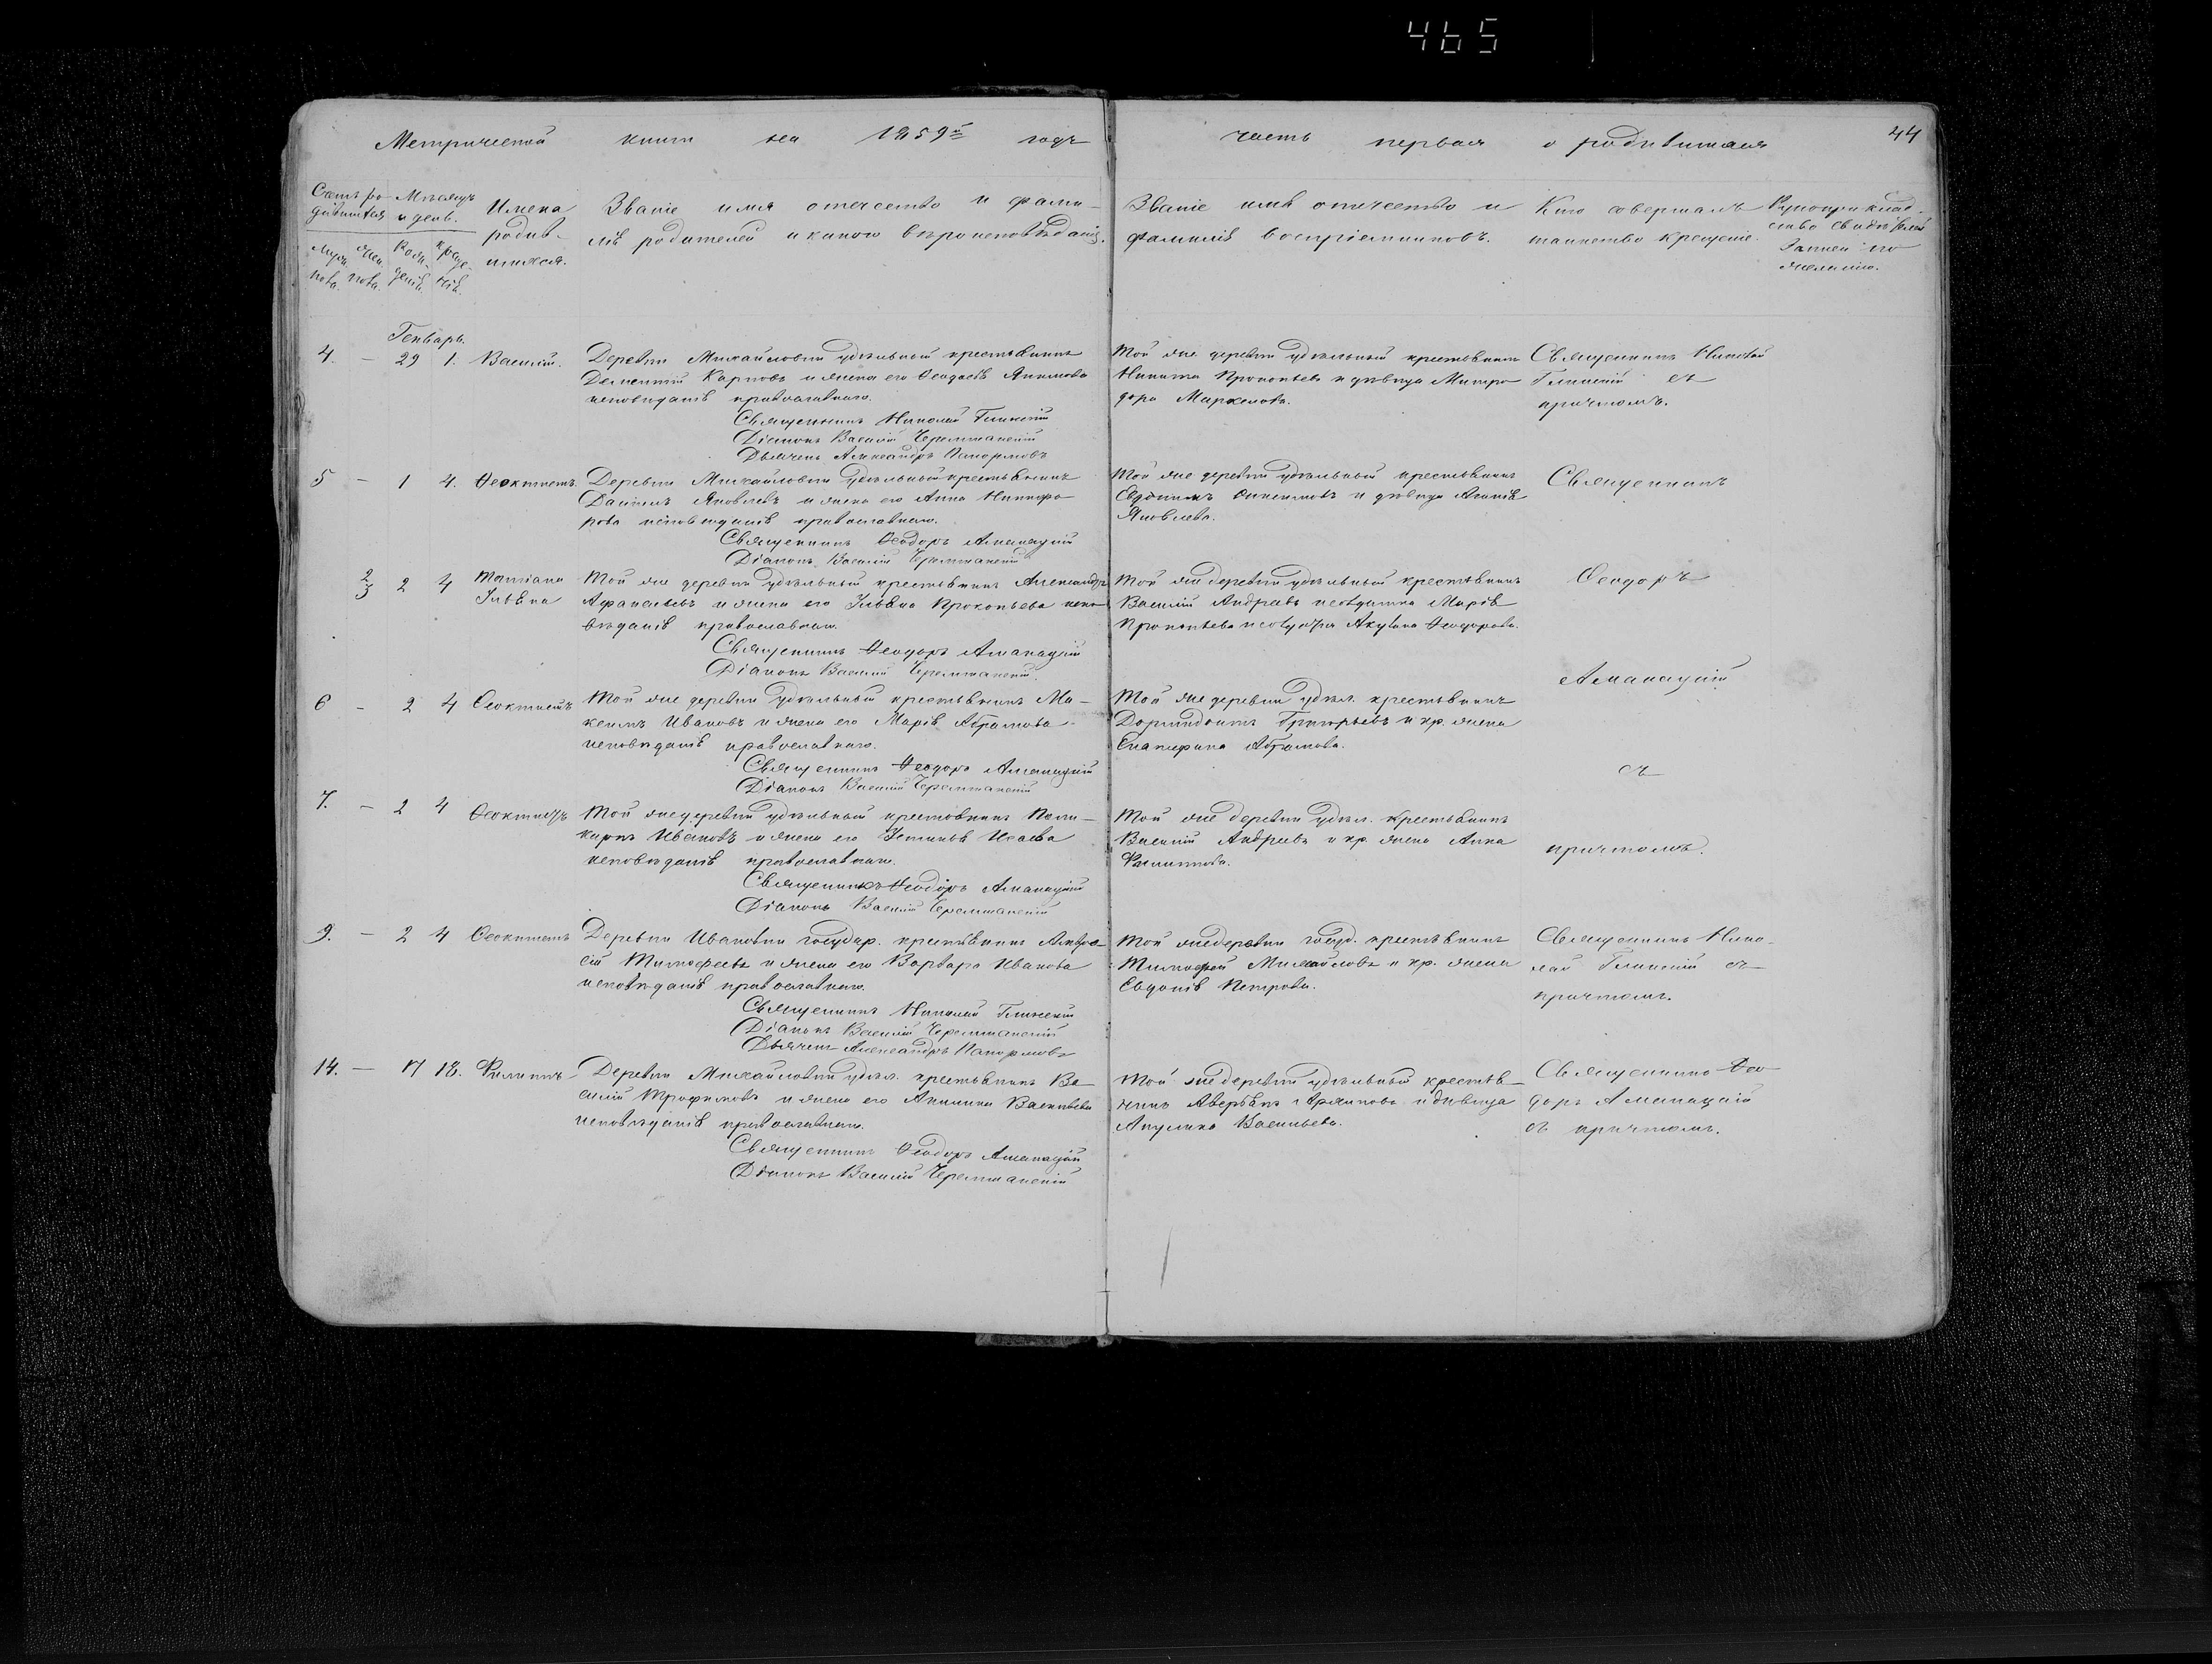 465
Метрической книги на 1859й годъ
часть первая о родившихся
44
Счетъ ро- Мѣсяцъ
дившихся и день.
Имена
родив-
шихся.
Званіе имя отечество и фами-
лія родителей и какого вѣроисповѣданія.
Муже. Жен. Рож- Креще-
пола. пола. денія. нія.
Званіе имя отечество и
фамилія воспріемниковъ.
Кто совершалъ
таинство крещенія.
Рукоприклад-
ство свидѣтелей
записи по
желанію.
Генварь.
4. — 29 1. Василій. Деревни Михайловки удѣльный крестьянинъ
Дементій Карповъ и жена его Ѳеодосія Акимова
исповѣданія православнаго.
Священникъ Николай Глинскій
Діаконъ Василій Черемшанскій
Дьячекъ Александръ Панормовъ
Той же деревни удѣльный крестьянинъ
Никита Прокопьевъ и дѣвица Митро-
дора Маркелова.
Священникъ Николай
Глинскій съ
причтомъ.
5 — 1 4. Ѳеоктистъ. Деревни Михайловки удѣльный крестьянинъ
Даніилъ Яковлевъ и жена его Анна Никифо-
рова исповѣданія православнаго.
Священникъ Ѳеодоръ Аманацкій
Діаконъ Василій Черемшанскій
Той же деревни удѣльный крестьянинъ
Евдокимъ Онисимовъ и дѣвица
Яковлева.
Священникъ
2
3 2 4 Татіана
Іліана
Той же деревни удѣльный крестьянинъ Александръ
Афанасьевъ и жена его Іліана Прокопьева испо-
вѣданія православнаго.
Священникъ Ѳеодоръ Аманацкій
Діаконъ Василій Черемшанскій.
Той же деревни удѣльный крестьянинъ
Василій Андреевъ и солдатка Марія
Прокопьева и Акулина Ѳеодорова.
Ѳеодоръ
Аманацкій
6 — 2 4 Ѳеоктистъ Той же деревни удѣльный крестьянинъ Ма-
ксимъ Ивановъ и жена его Марія Абрамова
исповѣданія православнаго.
Священникъ Ѳеодоръ Аманацкій
Діаконъ Василій Черемшанскій
Той же деревни удѣл. крестьянинъ
Дормидонтъ Григорьевъ и кр. жена
Екатерина Абрамова.
съ
7. — 2 4 Ѳеоктистъ Той же деревни удѣльный крестьянинъ Поли-
карпъ Ивановъ и жена его Устинья Исаева
исповѣданія православнаго.
Священникъ Ѳеодоръ Аманацкій
Діаконъ Василій Черемшанскій
Той же деревни удѣл. крестьянинъ
Василій Андреевъ и кр. жена Анна
Филиппова.
причтомъ.
9. — 2 4 Ѳеоктистъ Деревни Ивановки государ. крестьянинъ Амвро-
сій Тимофеевъ и жена его Варвара Иванова
исповѣданія православнаго.
Священникъ Николай Глинскій
Діаконъ Василій Черемшанскій
Дьячекъ Александръ Панормовъ
Той же деревни госуд. крестьянинъ
Тимофей Михайловъ и кр. жена
Евдокія Петрова.
Священникъ Нико-
лай Глинскій съ
причтомъ.
14. — 17 18. Филиппъ Деревни Михайловки удѣл. крестьянинъ Ва-
силій Трофимовъ и жена его Акилина Васильева
исповѣданія православнаго.
Священникъ Ѳеодоръ Аманацкій
Діаконъ Василій Черемшанскій
Той же деревни удѣльный крестья-
нинъ Аверьянъ Архиповъ и дѣвица
Акулина Васильева.
Священникъ Ѳео-
доръ Аманацкій
съ причтомъ.